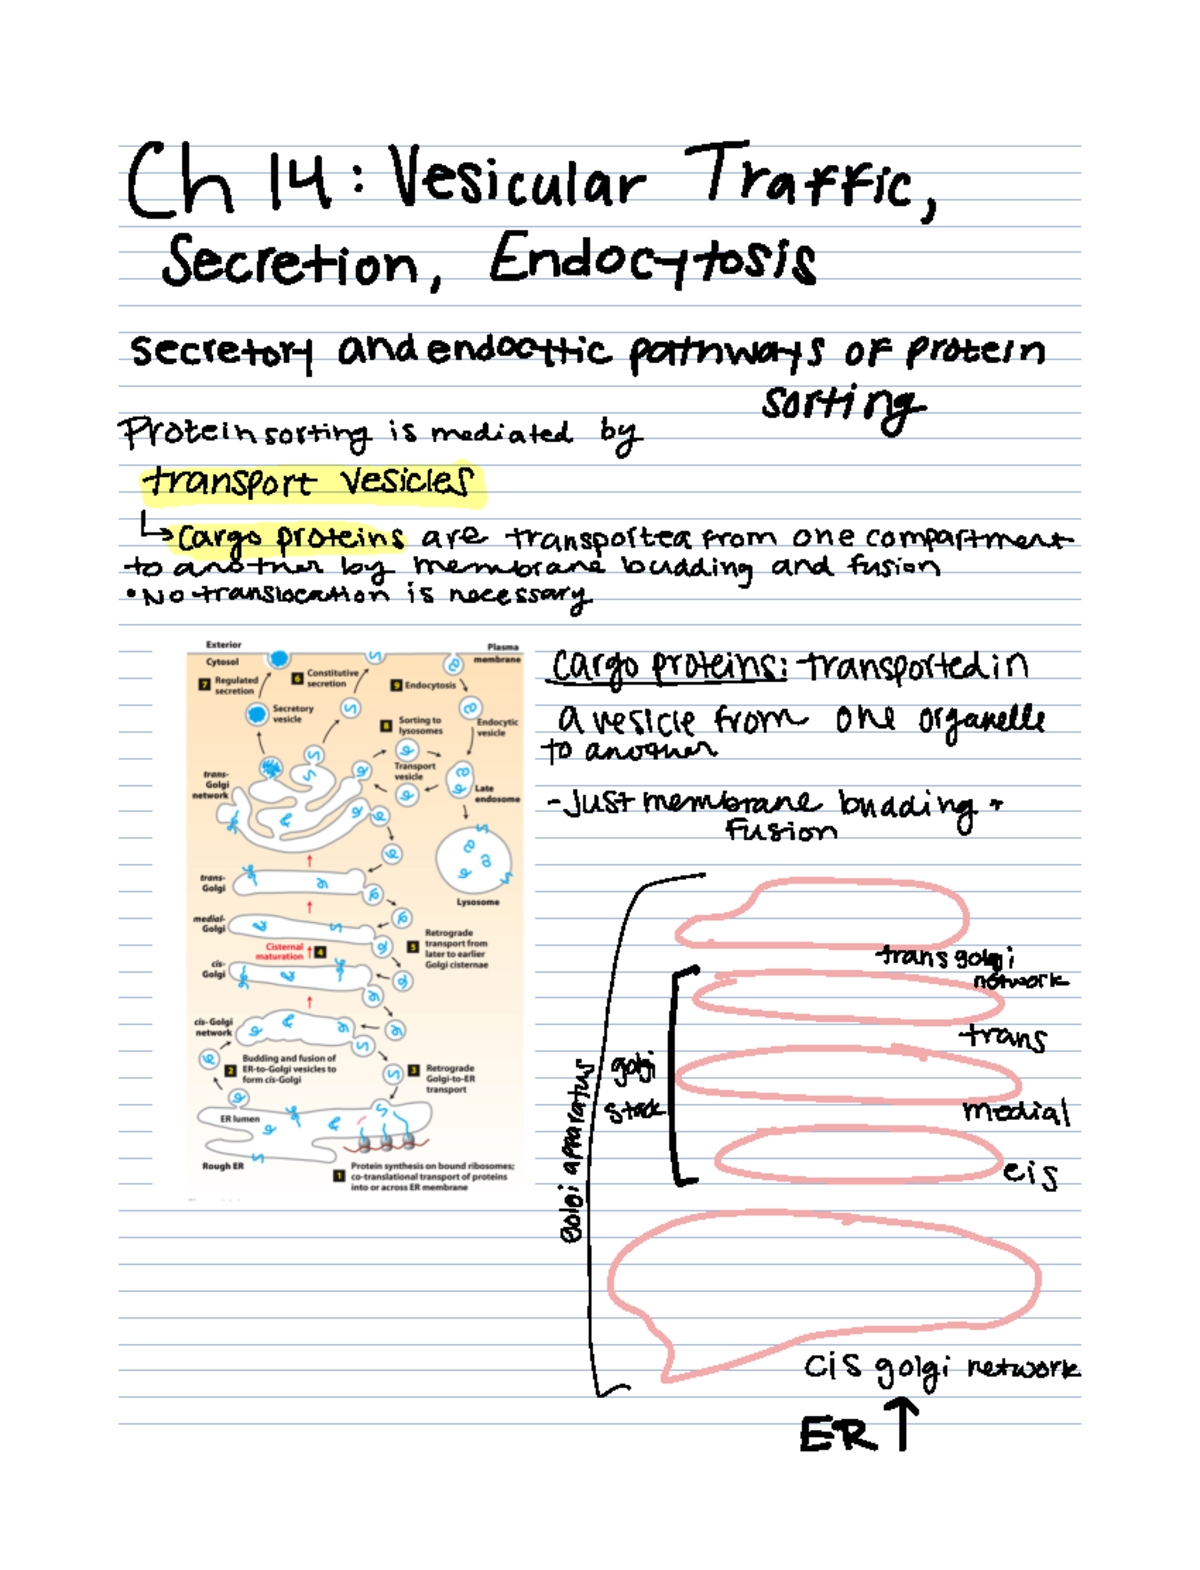 Ch 14: Vesicular Traffic,
Secretion, Endocytosis
secretory and endocytic pathways of protein
sorting
Protein sorting is mediated by
transport vesicles
↳ cargo proteins are transported from one compartment
to another by membrane budding and fusion
• No translocation is necessary
Exterior
Cytosol
Plasma
membrane
7 Regulated
secretion
6 Constitutive
secretion
9 Endocytosis
Secretory
vesicle
8 Sorting to
lysosomes
Endocytic
vesicle
Transport
vesicle
trans-
Golgi
network
Late
endosome
Lysosome
trans-
Golgi
medial-
Golgi
Cisternal
maturation 4
5 Retrograde
transport from
later to earlier
Golgi cisternae
cis-
Golgi
cis-Golgi
network
2 Budding and fusion of
ER-to-Golgi vesicles to
form cis-Golgi
3 Retrograde
Golgi-to-ER
transport
ER lumen
Rough ER
1 Protein synthesis on bound ribosomes;
co-translational transport of proteins
into or across ER membrane
cargo proteins: transported in
a vesicle from one organelle
to another
- Just membrane budding +
fusion
trans golgi
network
trans
medial
cis
golgi
stack
Golgi apparatus
cis golgi network
ER ↑